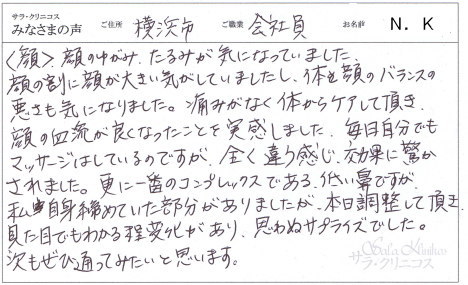 サラ・クリニコス
みなさまの声 ご住所 横浜市 ご職業 会社員 お名前 N. K
〈顔〉. 顔のゆがみ、たるみが気になっていました。
顔の割に顔が大きい気がしていましたし、体と顔のバランスの
悪さも気になりました。痛みがなく体からケアして頂き、
顔の血流が良くなったことを実感しました。毎日自分でも
マッサージはしているのですが、全く違う感じ、効果に驚か
されました。更に一番のコンプレックスである、低い鼻ですが、
私自身締めていた部分がありましたが、本日調整して頂き、
見た目でもわかる程変化があり、思わぬサプライズでした。
次もぜひ通ってみたいと思います。
Sala Klinikos
サラ・クリニコス